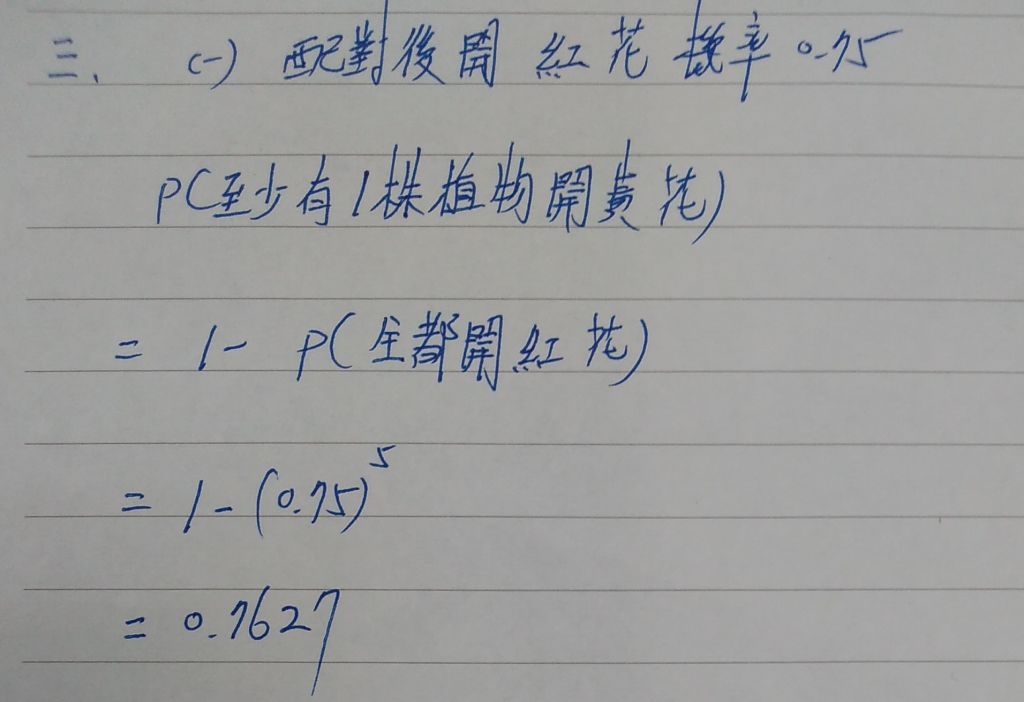 三、 (一) 配對後開 紅花 機率 0.75
P(至少有1株植物開黃花)
= 1- P(全都開紅花)
= 1-(0.75)^5
= 0.7627